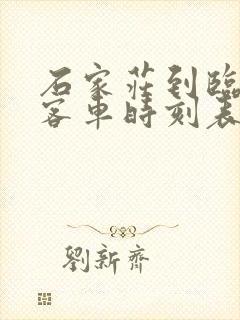 石家莊到臨
客車時刻表
劉新齊